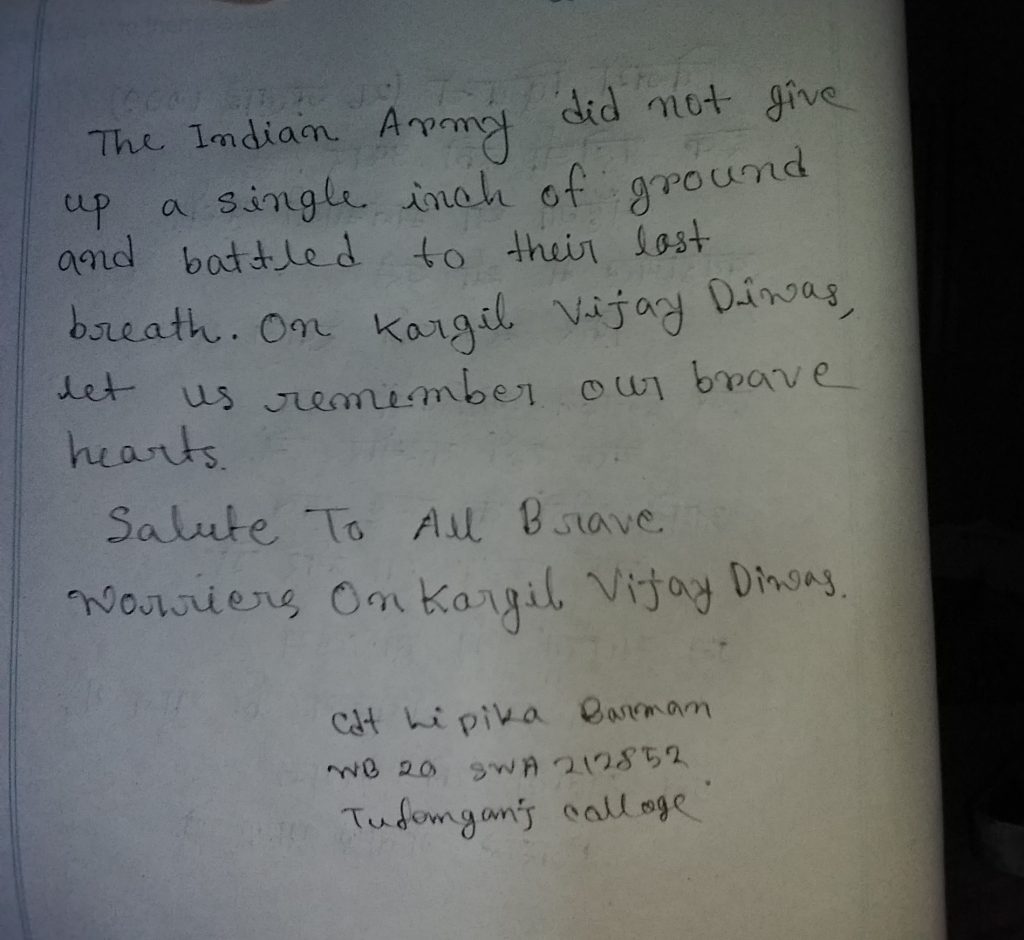 The Indian Army did not give
up a single inch of ground
and battled to their last
breath. On Kargil Vijay Diwas,
let us remember our brave
hearts.
Salute To All Brave
Warriers On Kargil Vijay Diwas.
Cdt Lipika Barman
WB 20 SWA 212852
Tufamganj callage